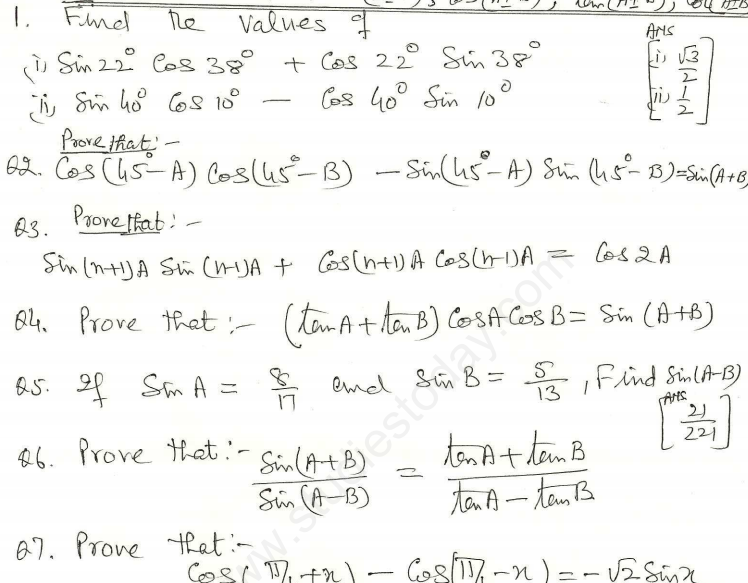 1. Find the values of
(i) Sin 22° Cos 38° + Cos 22° Sin 38°
(ii) Sin 40° Cos 10° – Cos 40° Sin 10°
ANS [(i) √3/2 (ii) 1/2]
Prove that:–
Q2. Cos(45°–A) Cos(45°–B) – Sin(45°–A) Sin(45°–B)=Sin(A+B)
Q3. Prove that:–
Sin(n+1)A Sin(n-1)A + Cos(n+1)A Cos(n-1)A = Cos2A
Q4. Prove that:– (tanA+tanB) CosA CosB = Sin(A+B)
Q5. If Sin A = 8/17 and Sin B = 5/13, Find Sin(A-B)
ANS [21/221]
Q6. Prove that:– Sin(A+B)/Sin(A–B) = tanA+tanB/tanA–tanB
Q7. Prove that:–
Cos(π/ +x) – Cos(π/ –x) = –√2 Sinx
www.studiestoday.com